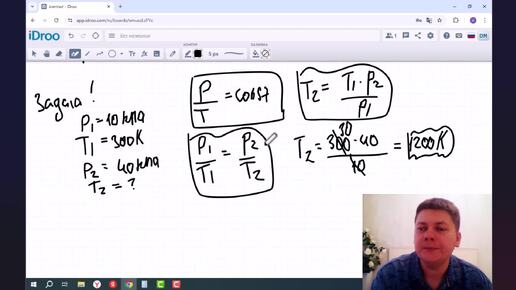 Untitled - iDroo
app.idroo.com/boards/wnuusLd7Yc
iDroo
Без названия
Share
DM
5 px
Задача!
P₁ = 10 кПа
T₁ = 300K
P₂ = 40 кПа
T₂ = ?
P/T = const
P₁/T₁ = P₂/T₂
T₂ = T₁·P₂/P₁
T₂ = 300·40/10 = 1200K
30